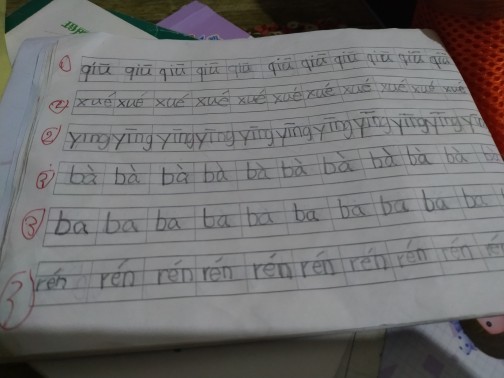 ① qiū qiū qiū qiū qiū qiū qiū qiū qiū qiū qiū
② xué xué xué xué xué xué xué xué xué xué xué
② yīng yīng yīng yīng yīng yīng yīng yīng yīng yīng
③ bà bà bà bà bà bà bà bà bà bà
③ ba ba ba ba ba ba ba ba ba ba
3 rén rén rén rén rén rén rén rén rén rén